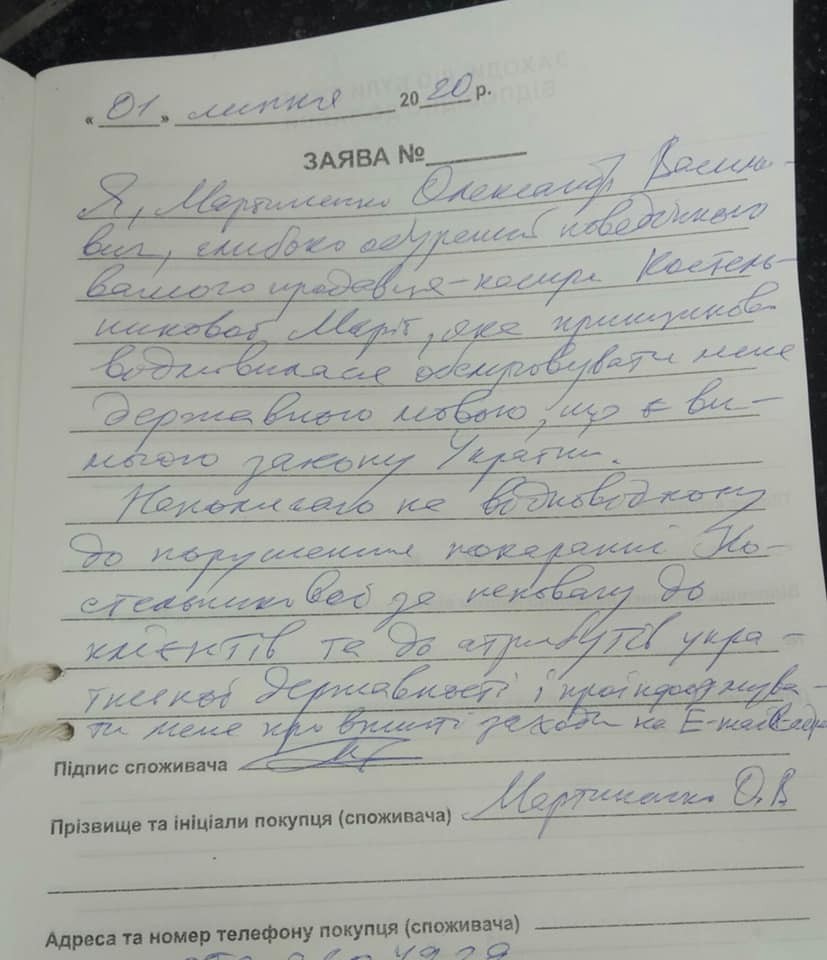 « 01 » липня 2020 р.
ЗАЯВА №
Я, Мартиненко Олександр Васильо-
вич, глибоко обурений поведінкою
вашого продавця-касира Костель-
никової Марії, яка принципово
відмовилася обслуговувати мене
державною мовою, що є ви-
могою закону України.
Наполягаю на
до порушення покаранні Ко-
стельникової за неповагу до
клієнтів та до атрибутів укра-
їнської державності і проінформува-
ти мене про вжиті заходи на E-mail
Підпис споживача
Прізвище та ініціали покупця (споживача) Мартиненко О.В
Адреса та номер телефону покупця (споживача)